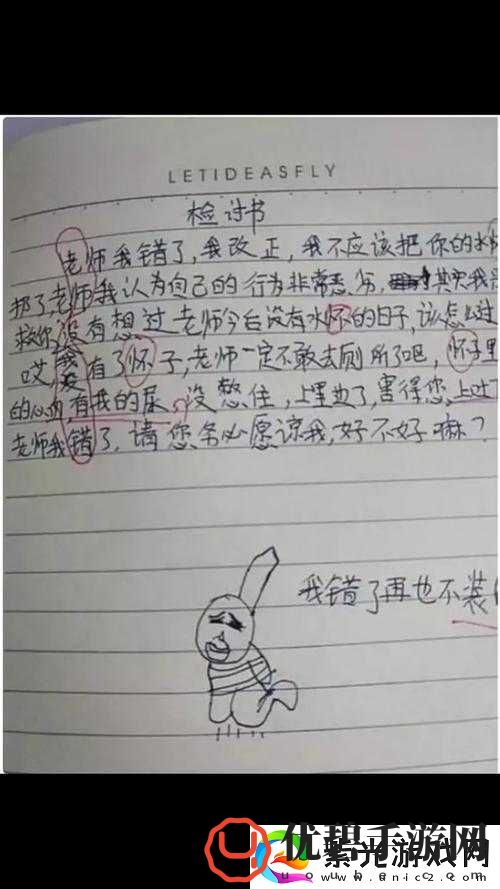 LETIDEASFLY
检讨书
老师我错了,我改正,我不应该把你的水
扔了,老师我认为自己的行为非常恶劣,其实我
救你,没有想过老师今后没有水怀的日子,该怎么过
哎,我有了怀子,老师一定不敢去厕所了吧,怀子里
的心有我的尿,没憋住,上里边了,害得您上吐
老师我错了,请您务必愿谅我,好不好嘛?
我错了再也不装
优碧手游网
紫光游戏网
www.enic2.com